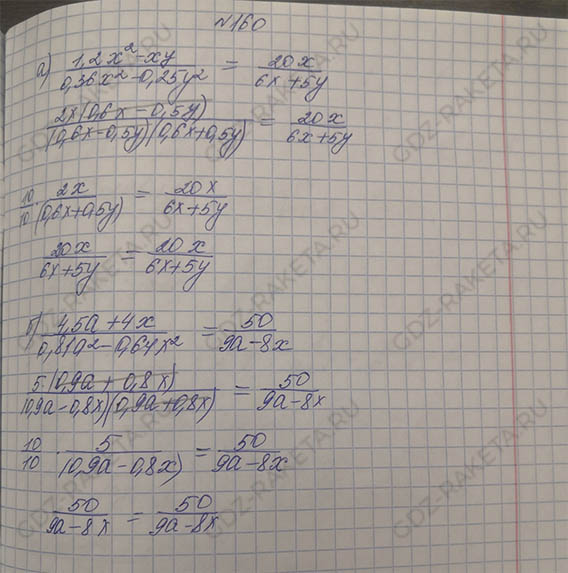 №160
а) (1,2x²-xy)/(0,36x²-0,25y²) = 20x/(6x+5y)
2x(0,6x-0,5y)/((0,6x-0,5y)(0,6x+0,5y)) = 20x/(6x+5y)
10/10 · 2x/(0,6x+0,5y) = 20x/(6x+5y)
20x/(6x+5y) = 20x/(6x+5y)
б) (4,5a+4x)/(0,81a²-0,64x²) = 50/(9a-8x)
5(0,9a+0,8x)/((0,9a-0,8x)(0,9a+0,8x)) = 50/(9a-8x)
10/10 · 5/(0,9a-0,8x) = 50/(9a-8x)
50/(9a-8x) = 50/(9a-8x)
GDZ-RAKETA.RU